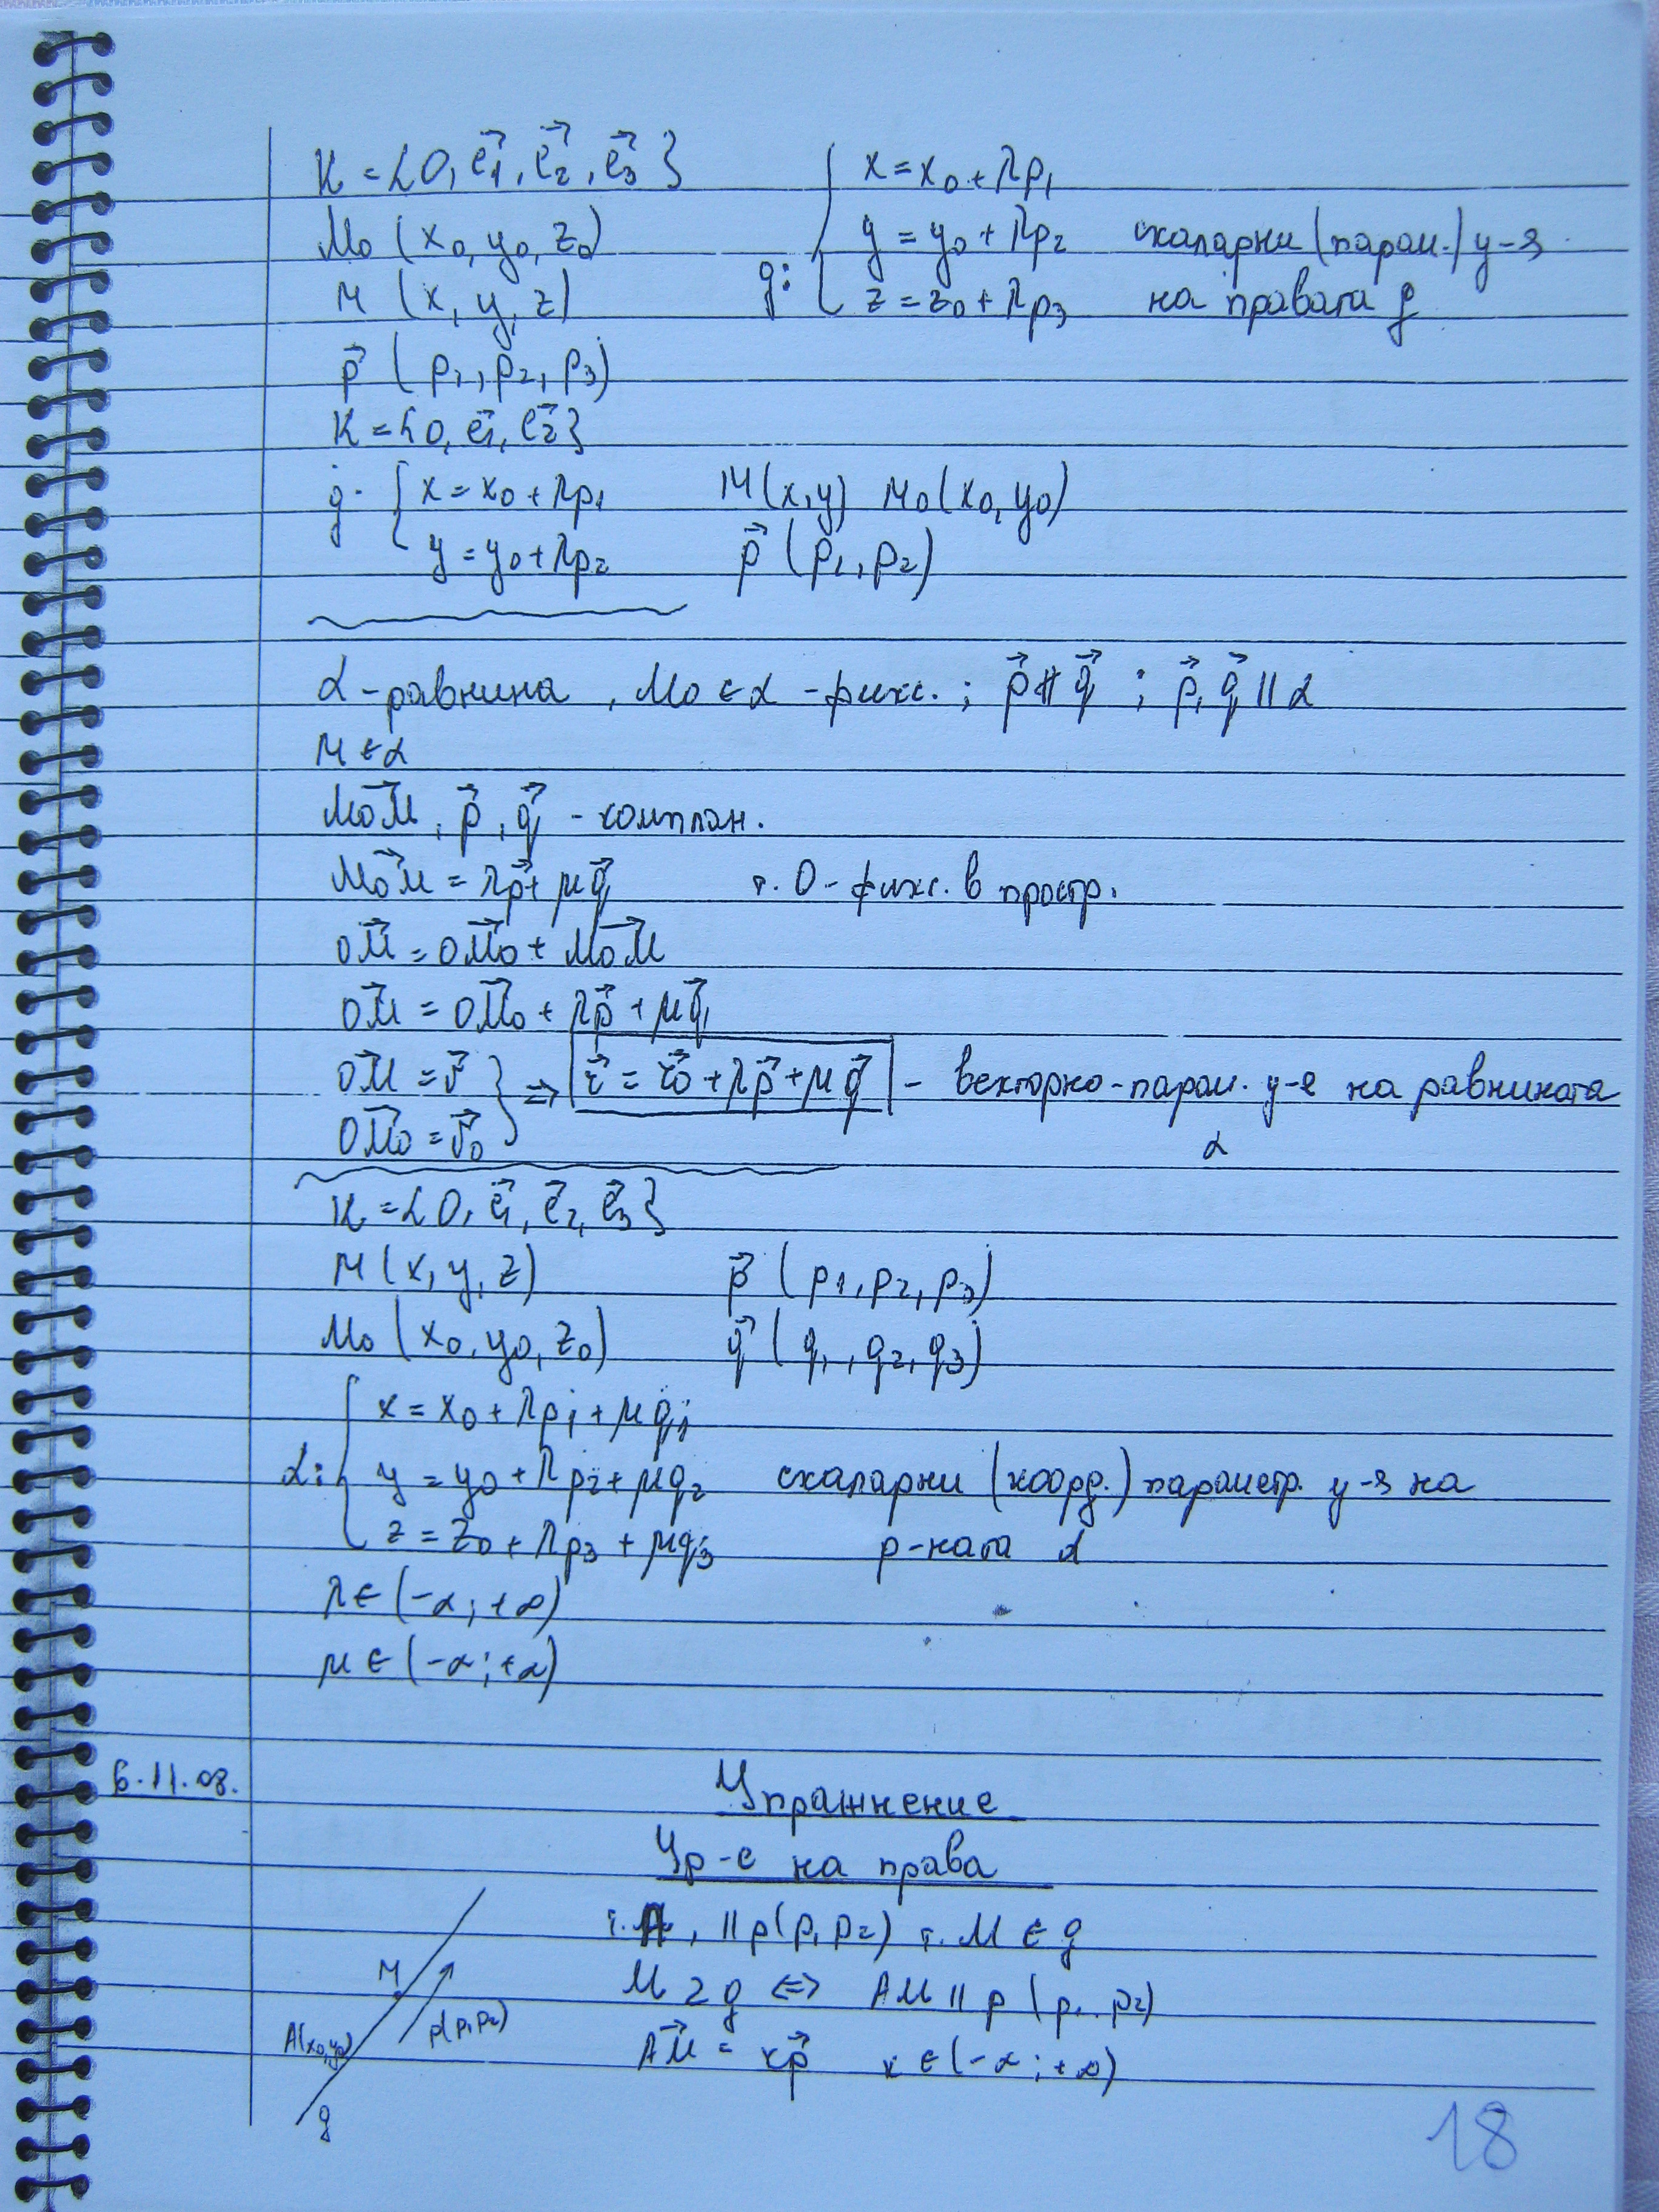 K = {O, e⃗1, e⃗2, e⃗3}
M0 (x0, y0, z0)
M (x, y, z)
p⃗ (p1, p2, p3)
g: { x = x0 + λp1
y = y0 + λp2 скаларни (парам.) у-я
z = z0 + λp3 на правата g
K = {O, e⃗1, e⃗2}
g: { x = x0 + λp1 M(x, y) M0(x0, y0)
y = y0 + λp2 p⃗ (p1, p2)
α - равнина, M0 ∈ α - фикс. ; p⃗ ∦ q⃗ ; p⃗, q⃗ || α
M ∈ α
M0M⃗, p⃗, q⃗ - комплан.
M0M⃗ = λp⃗ + μq⃗ т. O - фикс. в простр.
OM⃗ = OM⃗0 + M0M⃗
OM⃗ = OM⃗0 + λp⃗ + μq⃗
OM⃗ = r⃗
OM⃗0 = r⃗0 } => r⃗ = r⃗0 + λp⃗ + μq⃗ - векторно-парам. у-е на равнината
α
K = {O, e⃗1, e⃗2, e⃗3}
M (x, y, z) p⃗ (p1, p2, p3)
M0 (x0, y0, z0) q⃗ (q1, q2, q3)
α: { x = x0 + λp1 + μq1
y = y0 + λp2 + μq2 скаларни (коорд.) параметр. у-я на
z = z0 + λp3 + μq3 р-ната α
λ ∈ (-∞; +∞)
μ ∈ (-∞; +∞)
6.11.08.
Упражнение
Ур-е на права
т. A, || p(p1 p2) т. M ∈ g
M Z g <=> AM || p (p1 p2)
AM⃗ = kp⃗ k ∈ (-∞; +∞)
M
p(p1 p2)
A(x0, y0)
g
18